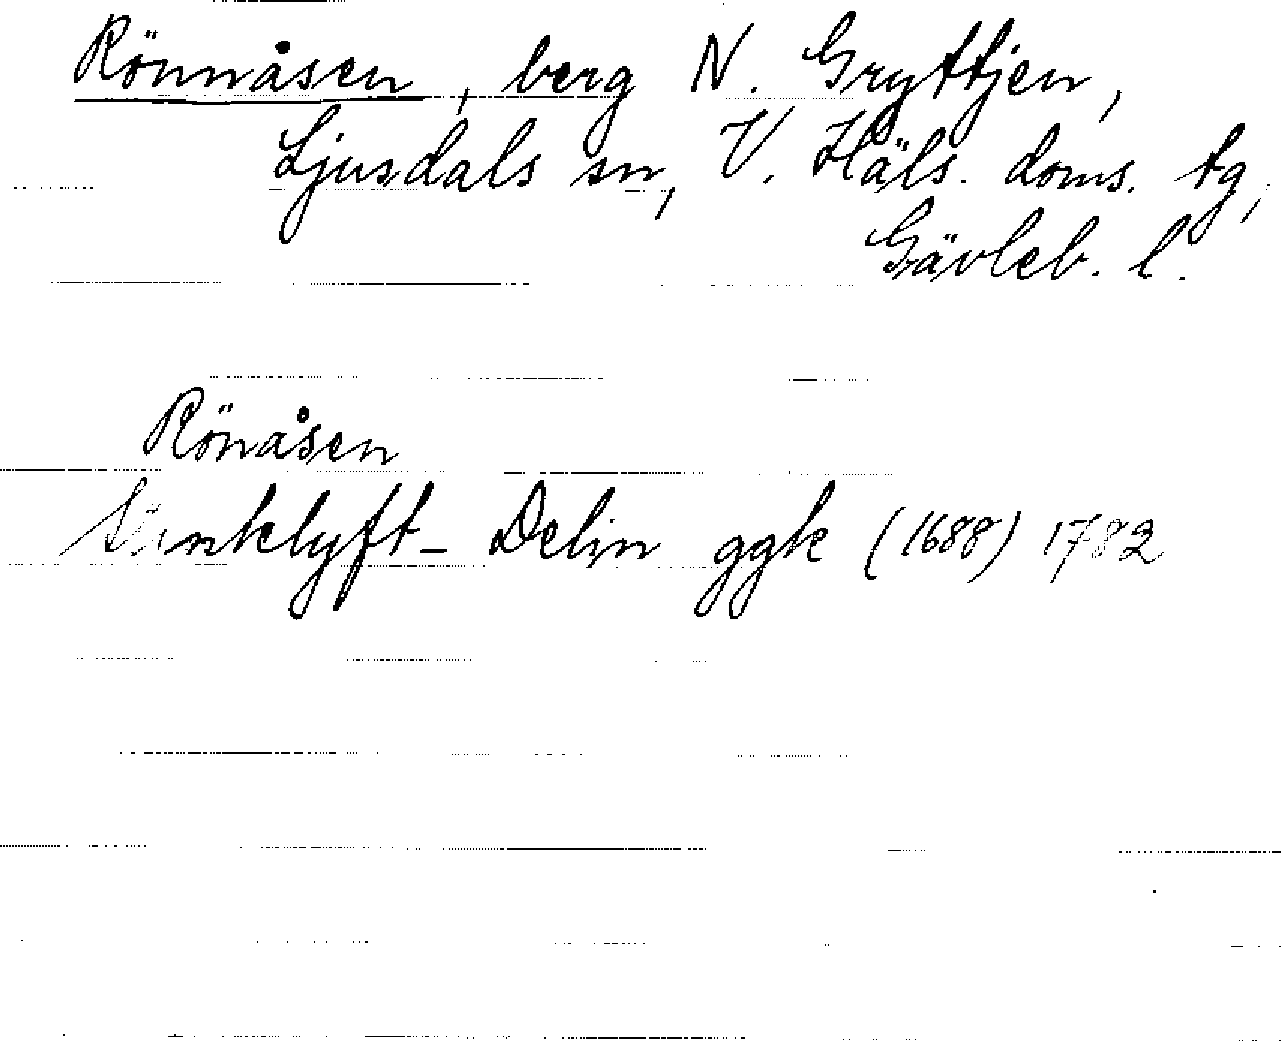 Rönnåsen, berg N. Gryttjen,
Ljusdals sn, V. Häls. doms. tg,
Gävleb. l.
Rönåsen
Delin ggk (1688) 1782